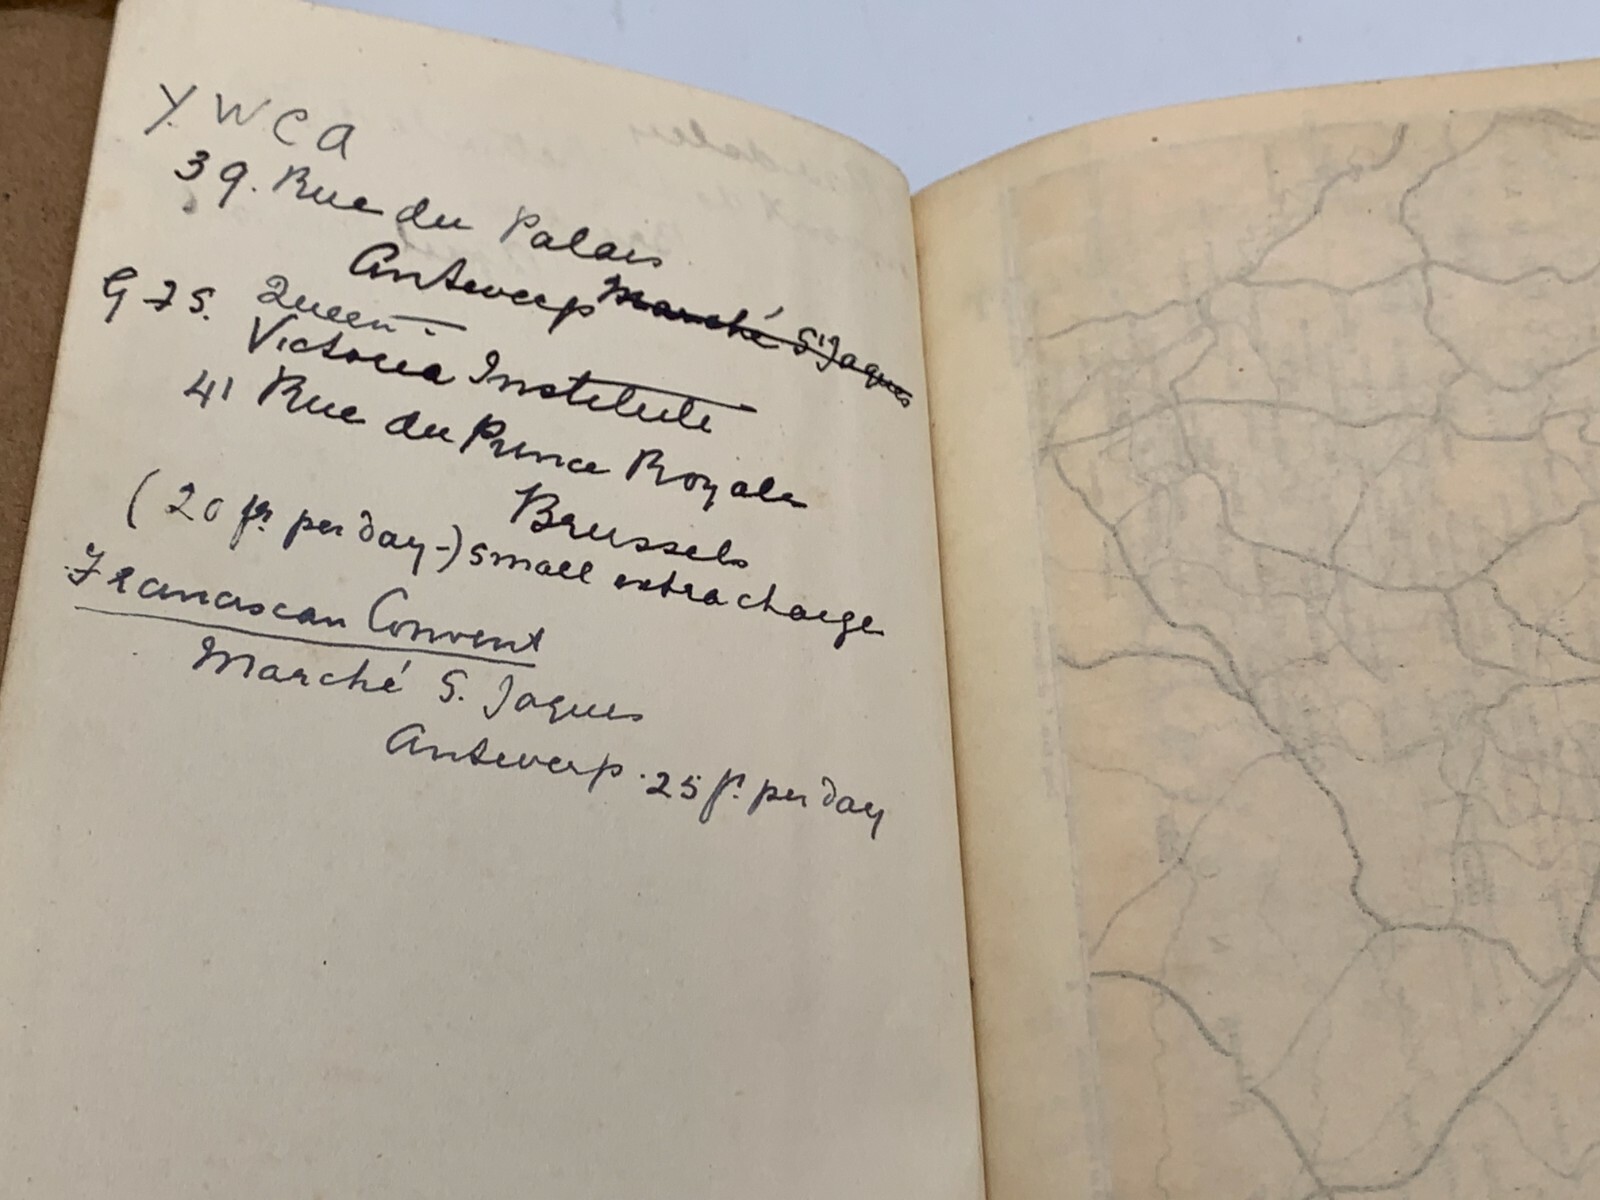 Y.W.C.A
39. Rue du Palais
Antwerp ~~Marché St Jaques~~
G.F.S. Queen
Victoria Institute
41 Rue du Prince Royale
Brussels
(20 fr per day-) small extra charge
Franciscan Convent
Marché S. Jaques
Antwerp. 25 fr. per day